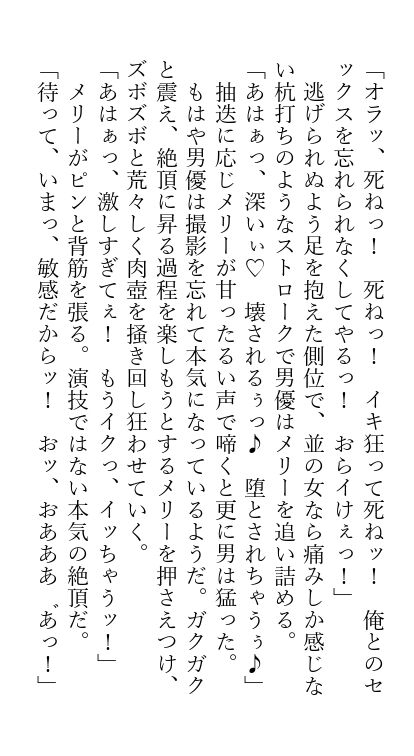 「オラッ、死ねっ！　死ねっ！　イキ狂って死ねッ！　俺とのセ
ックスを忘れられなくしてやるっ！　おらイけぇっ！」
　逃げられぬよう足を抱えた側位で、並の女なら痛みしか感じな
い杭打ちのようなストロークで男優はメリーを追い詰める。
「あはぁっ、深いぃ♡　壊されるぅっ♪　堕とされちゃうぅ♪」
　抽迭に応じメリーが甘ったるい声で啼くと更に男は猛った。
　もはや男優は撮影を忘れて本気になっているようだ。ガクガク
と震え、絶頂に昇る過程を楽しもうとするメリーを押さえつけ、
ズボズボと荒々しく肉壺を掻き回し狂わせていく。
「あはぁっ、激しすぎてぇ！　もうイクっ、イッちゃうッ！」
　メリーがピンと背筋を張る。演技ではない本気の絶頂だ。
「待って、いまっ、敏感だからッ！　おッ、おあああ゛あっ！」